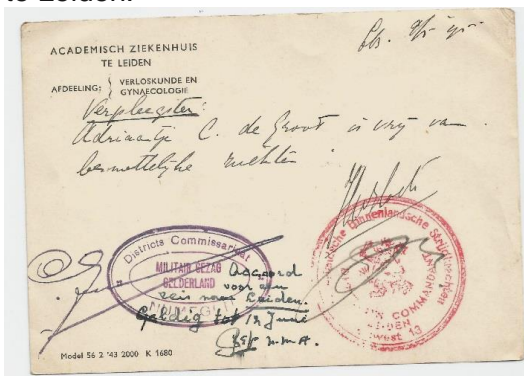 te Leiden.
ACADEMISCH ZIEKENHUIS
TE LEIDEN
AFDEELING: } VERLOSKUNDE EN
GYNAECOLOGIE
Verpleegster:
Adriaantje C. de Groot is vrij van
besmettelijke ziekten
Districts Commissariaat
MILITAIR GEZAG
GELDERLAND
NIJMEGEN
Accoord
voor een
reis naar Leiden.
Geldig tot 12 Juni
Binnenlandsche Strijdkrachten
COMMANDANT
LEIDEN
Gewest 13
Model 56 2 '43 2000 K 1680